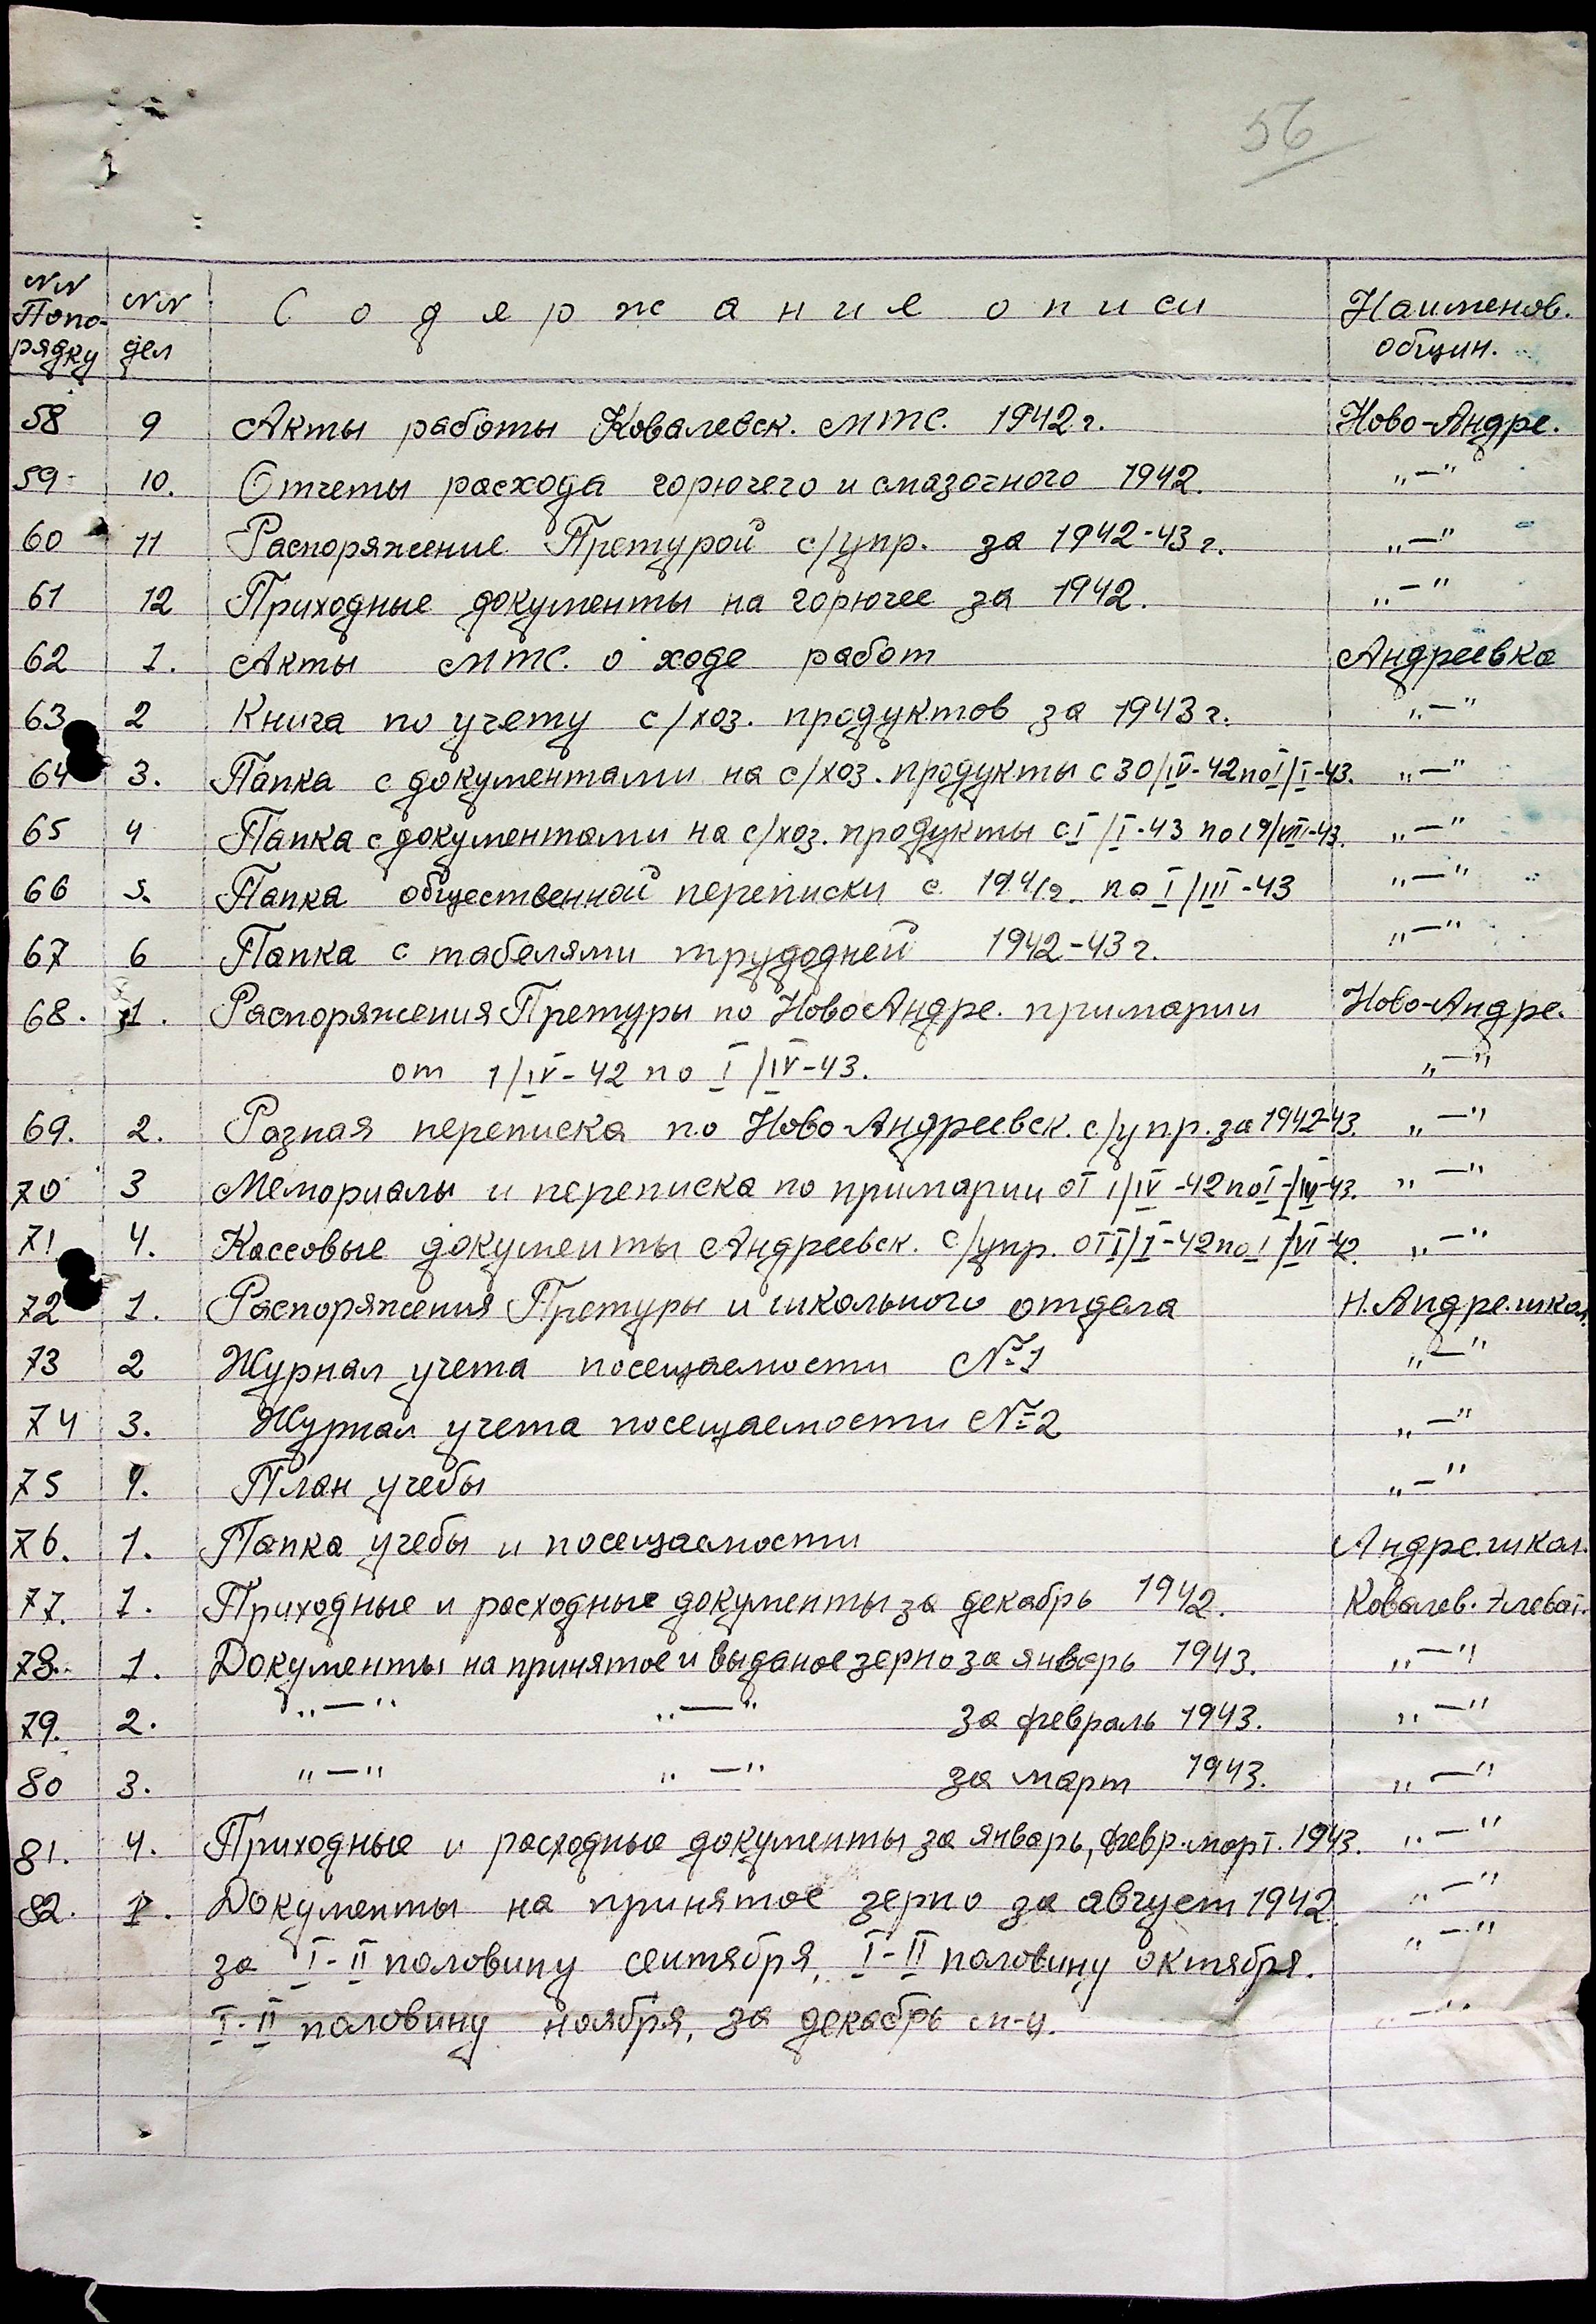 56
NN Попо-рядку NN дел Содержание описи Наименов. общин.
58 9 Акты работы Ковалевск. МТС. 1942 г. Ново-Андре.
59 10. Отчеты расхода горючего и смазочного 1942. „—"
60 11 Распоряжение Претурой с/упр. за 1942-43 г. „—"
61 12 Приходные документы на горючее за 1942. „—"
62 1. Акты МТС. о ходе работ Андреевка
63 2 Книга по учету с/хоз. продуктов за 1943 г. „—"
64 3. Папка с документами на с/хоз. продукты с 30/IV-42 по I/I-43. „—"
65 4 Папка с документами на с/хоз. продукты с I/I-43 по 19/VIII-43. „—"
66 5. Папка общественной переписки с 1941г. по I/III-43 „—"
67 6 Папка с табелями трудодней 1942-43 г. „—"
68. 1. Распоряжения Претуры по НовоАндре. примарии Ново-Андре.
от 1/IV-42 по I/IV-43. „—"
69. 2. Разная переписка по Ново-Андреевск. с/упр. за 1942-43. „—"
70 3 Мемориалы и переписка по примарии от 1/IV-42 по I/IV-43. „—"
71 4. Кассовые документы Андреевск. с/упр. от I/I-42 по I/VI-42. „—"
72 1. Распоряжения Претуры и школьного отдела Н. Андре. школ.
73 2 Журнал учета посещаемости №1 „—"
74 3. Журнал учета посещаемости №2 „—"
75 4. План учебы „—"
76. 1. Папка учебы и посещаемости Андре. школ.
77. 1. Приходные и расходные документы за декабрь 1942. Ковалев. Элеват.
78. 1. Документы на принятое и выданое зерно за январь 1943. „—"
79. 2. „—" „—" за февраль 1943. „—"
80 3. „—" „—" за март 1943. „—"
81. 4. Приходные и расходные документы за январь, февр. март. 1943. „—"
82. 1. Документы на принятое зерно за август 1942. „—"
за I-II половину сентября, I-II половину октября. „—"
I-II половину ноября, за декабрь м-ц. „—"